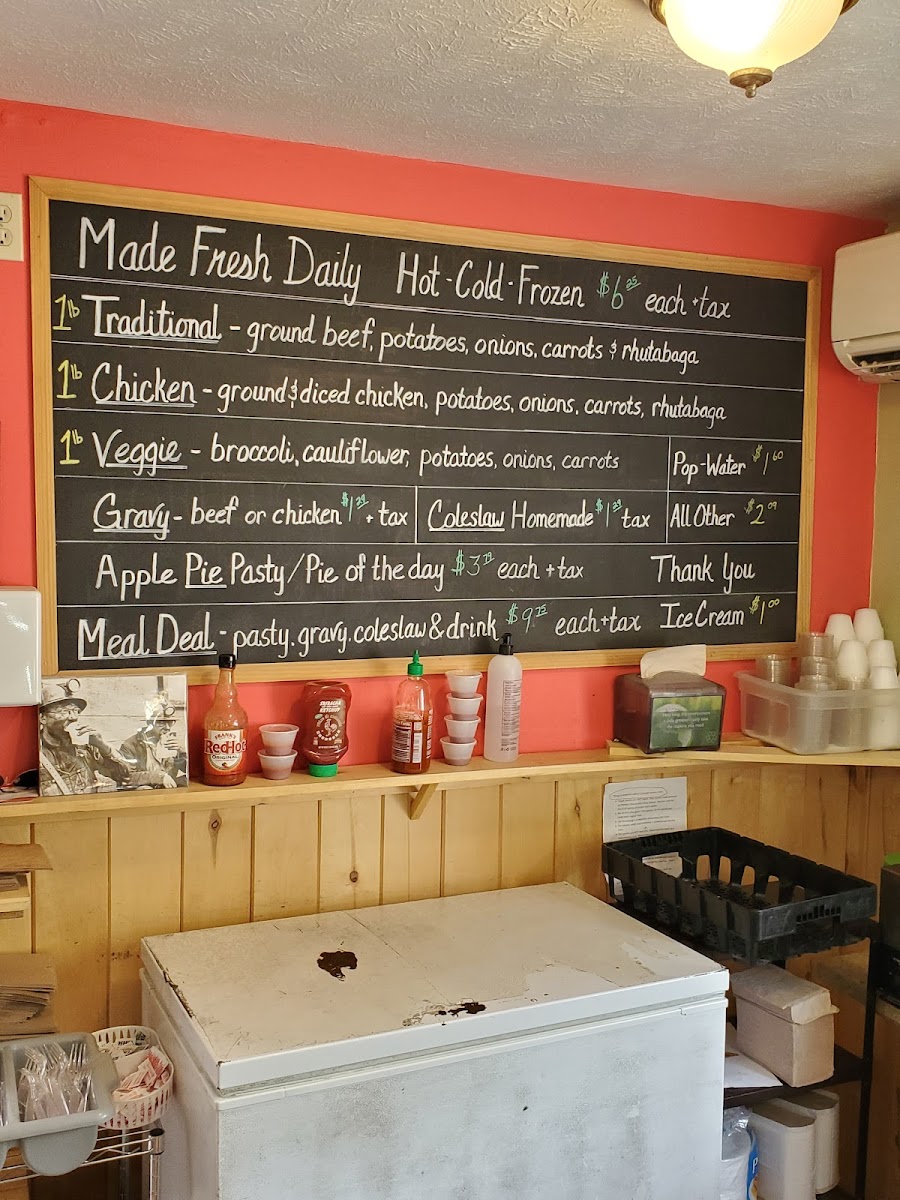 Made Fresh Daily Hot-Cold-Frozen $6 25 each + tax
1lb Traditional - ground beef, potatoes, onions, carrots & rhutabaga
1lb Chicken - ground & diced chicken, potatoes, onions, carrots, rhutabaga
1lb Veggie - broccoli, cauliflower, potatoes, onions, carrots
Pop-Water $1 60
Gravy - beef or chicken $1 29 + tax
Coleslaw Homemade $1 29 tax
All Other $2 09
Apple Pie Pasty/Pie of the day $3 19 each + tax Thank You
Meal Deal - pasty, gravy, coleslaw & drink $9 25 each + tax Ice Cream $1 00
FRANK'S
RedHot
ORIGINAL
SRIRACHA
KETCHUP